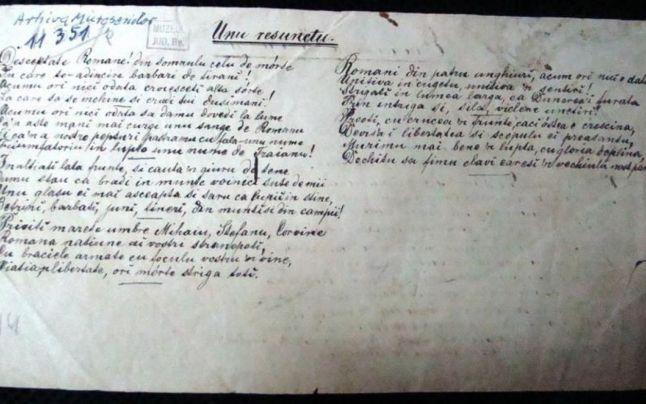 Arhiva Muresenilor
11 351
MUZEUL
JUD. Bv.
Unu resunetu.
Desceptate Romane! din somnulu celu de mórte
In care te-adincira barbari de tirani!
Acumu ori nici odata croiesceti alta sórte
La care sa se inchine si crudi tui dusimani!
Acumu ori nici odata sa damu dovedi la lume
Ca aste mani mai curge unu sange de Romanu
Si ca'n a nostre pepturi pastramu cu fala-unu nume
Triumfatoriu in lupte unu nume de Traianu!
Inaltiati lata frunte, si cauta'n giuru de tene
Cumu stau ca bradi in munte voinici sute de mii
Unu glasu ei mai ascepta si saru ca lupii in stine,
Betrini, barbati, juni, tineri, din munti si din campii!
Priviti marete umbre Mihaiu, Stefanu, Corvine
Romana natiune ai vostri stranepoti,
Cu braciele armate cu foculu vostru 'n vine,
Viatia'n libertate, ori mórte striga toti.
Romani din patru unghiuri, acum ori nici o data
Uniti-va in cugetu, uniti-va 'n sentiri!
Strigati in lumea larga, ca Dunerea-i furata
Prin intriga si, sila, viclene uneltiri!
Preoti, cu crucea 'n frunte, caci óstea e crestina,
Devisa-i libertatea si scopulu ei preasantu,
Murimu mai bene 'n lupta, cu gloria deplina,
Dechitu sa fimu sclavi earesi 'n vechiulu nost